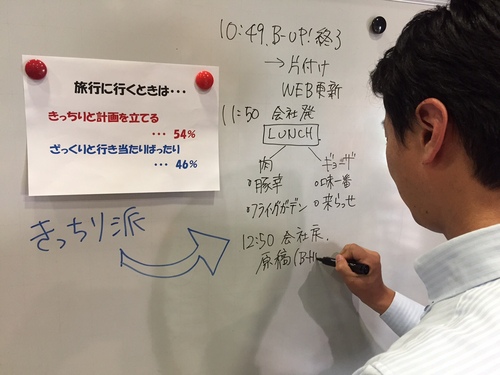 旅行に行くときは・・・
きっちりと計画を立てる
・・・ 54%
ざっくりと行き当たりばったり
・・・ 46%
きっちり派
10:49 B-UP!終了
→片付け
WEB更新
11:50 会社発
LUNCH
肉
ギョーザ
・豚幸
・味一番
・フライングガーデン
・来らっせ
12:50 会社戻
原稿(B-H